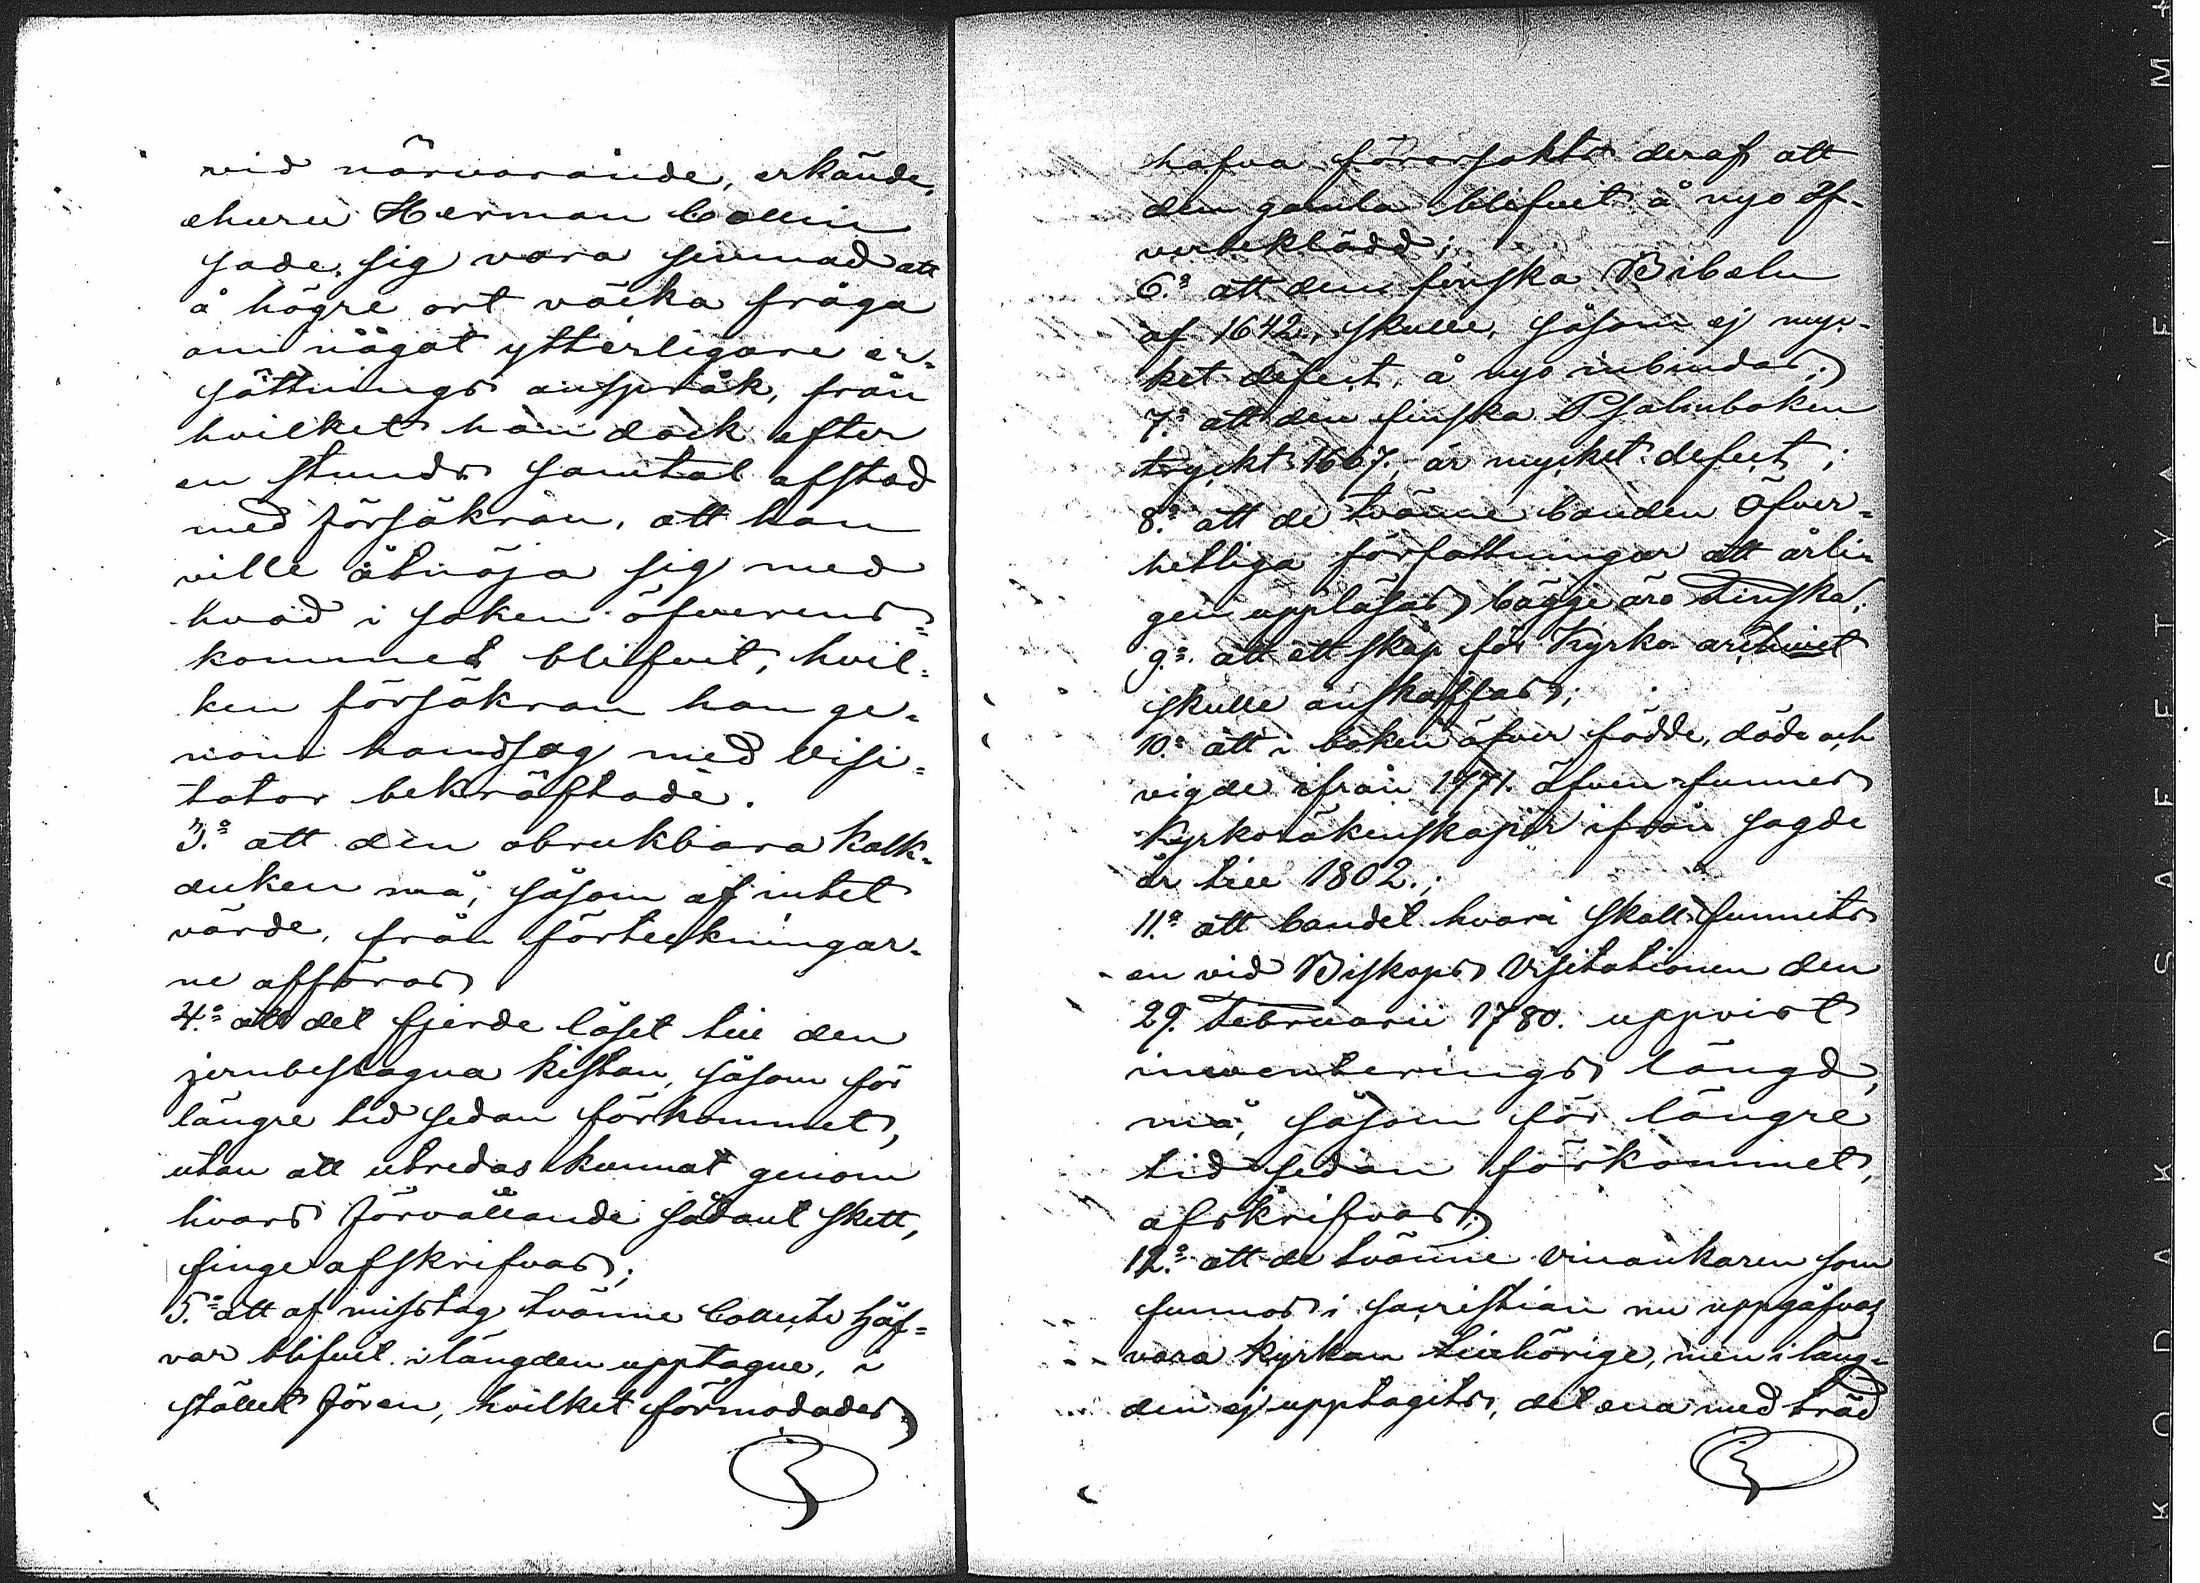 vid närvarande, erkände,
ehuru Herman Collin
sade sig vara sinnad att
å högre ort väcka fråga
om något ytterligare er-
sättnings anspråk, från
hvilket han dock efter
en stunds samtal afstod
med försäkran, att han
ville åtnöja sig med
hvad i saken öfverens-
kommet blifvit, hvil-
ken försäkran han ge-
nom handslag med Visi-
tator bekräftade.
3:o att den obrukbara kalk-
duken må, såsom af intet
värde, från förteckningar-
ne afföras
4:o att det fjerde låset till den
jernbeslagna kistan, såsom för
längre tid sedan förkommet,
utan att utredas kunnat genom
hvars förvållande sådant skett,
finge afskrifvas;
5:o att af misstag tvänne Collecte håf-
var blifvit i längden upptagne, i
stället för en, hvilket förmodades
hafva förorsakts deraf att
den gamla blifvit å nyo öf-
verbeklädd;
6:o att den finska Bibeln
af 1642, skulle, såsom ej myc-
ket defect, å nyo inbindas;
7:o att den finska Psalmboken
tryckt 1667, är mycket defect;
8:o att de tvänne banden Öfver-
hetliga författningar att årli-
gen uppläsas, bägge äro finska;
9:o att ett skåp för Kyrko archivet
skulle anskaffas;
10:o att i boken öfver födde, döde och
vigde ifrån 1771. äfven funnes
Kyrkoräkenskaper ifrån sagde
år till 1802.;
11:o att bandet hvari skall funnits
en vid Biskops Visitationen den
29. Februarii 1780. uppvist
inventerings längd,
må, såsom för längre
tid sedan förkommet,
afskrifvas;
12:o att de tvänne vinankaren som
funnos i sacristian nu uppgåfvos
vara Kyrkan tillhörige, men i läng-
den ej upptagits, det ena med träd
KODAK SAFETY FILM